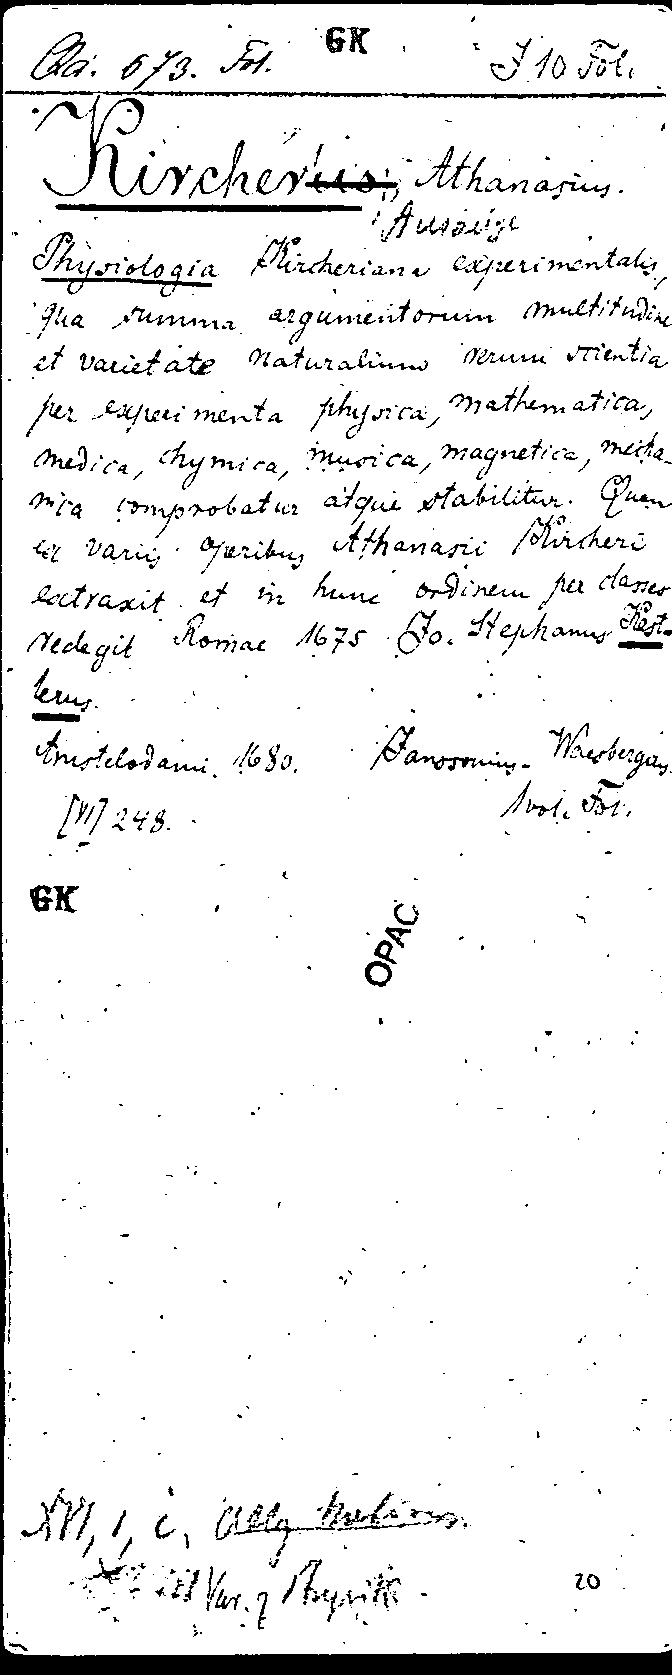 Qa. 673. Fol. GK J 10 Fol.
Kircherius, Athanasius.
Auszüge
Physiologia Kircheriana experimentalis,
qua summa argumentorum multitudine
et varietate naturalium rerum scientia
per experimenta physica, mathematica,
medica, chymica, musica, magnetica, mecha-
nica comprobatur atque stabilitur. Quam
ex variis operibus Athanasii Kircheri
extraxit et in hunc ordinem per classes
redegit Romae 1675 Jo. Stephanus Kest-
lerus.
Amstelodami. 1680. Janssonius-Waesbergius.
[VI] 248. 1 vol. Fol.
GK
OPAC
XVI, 1, c,
Var. z Physik
20